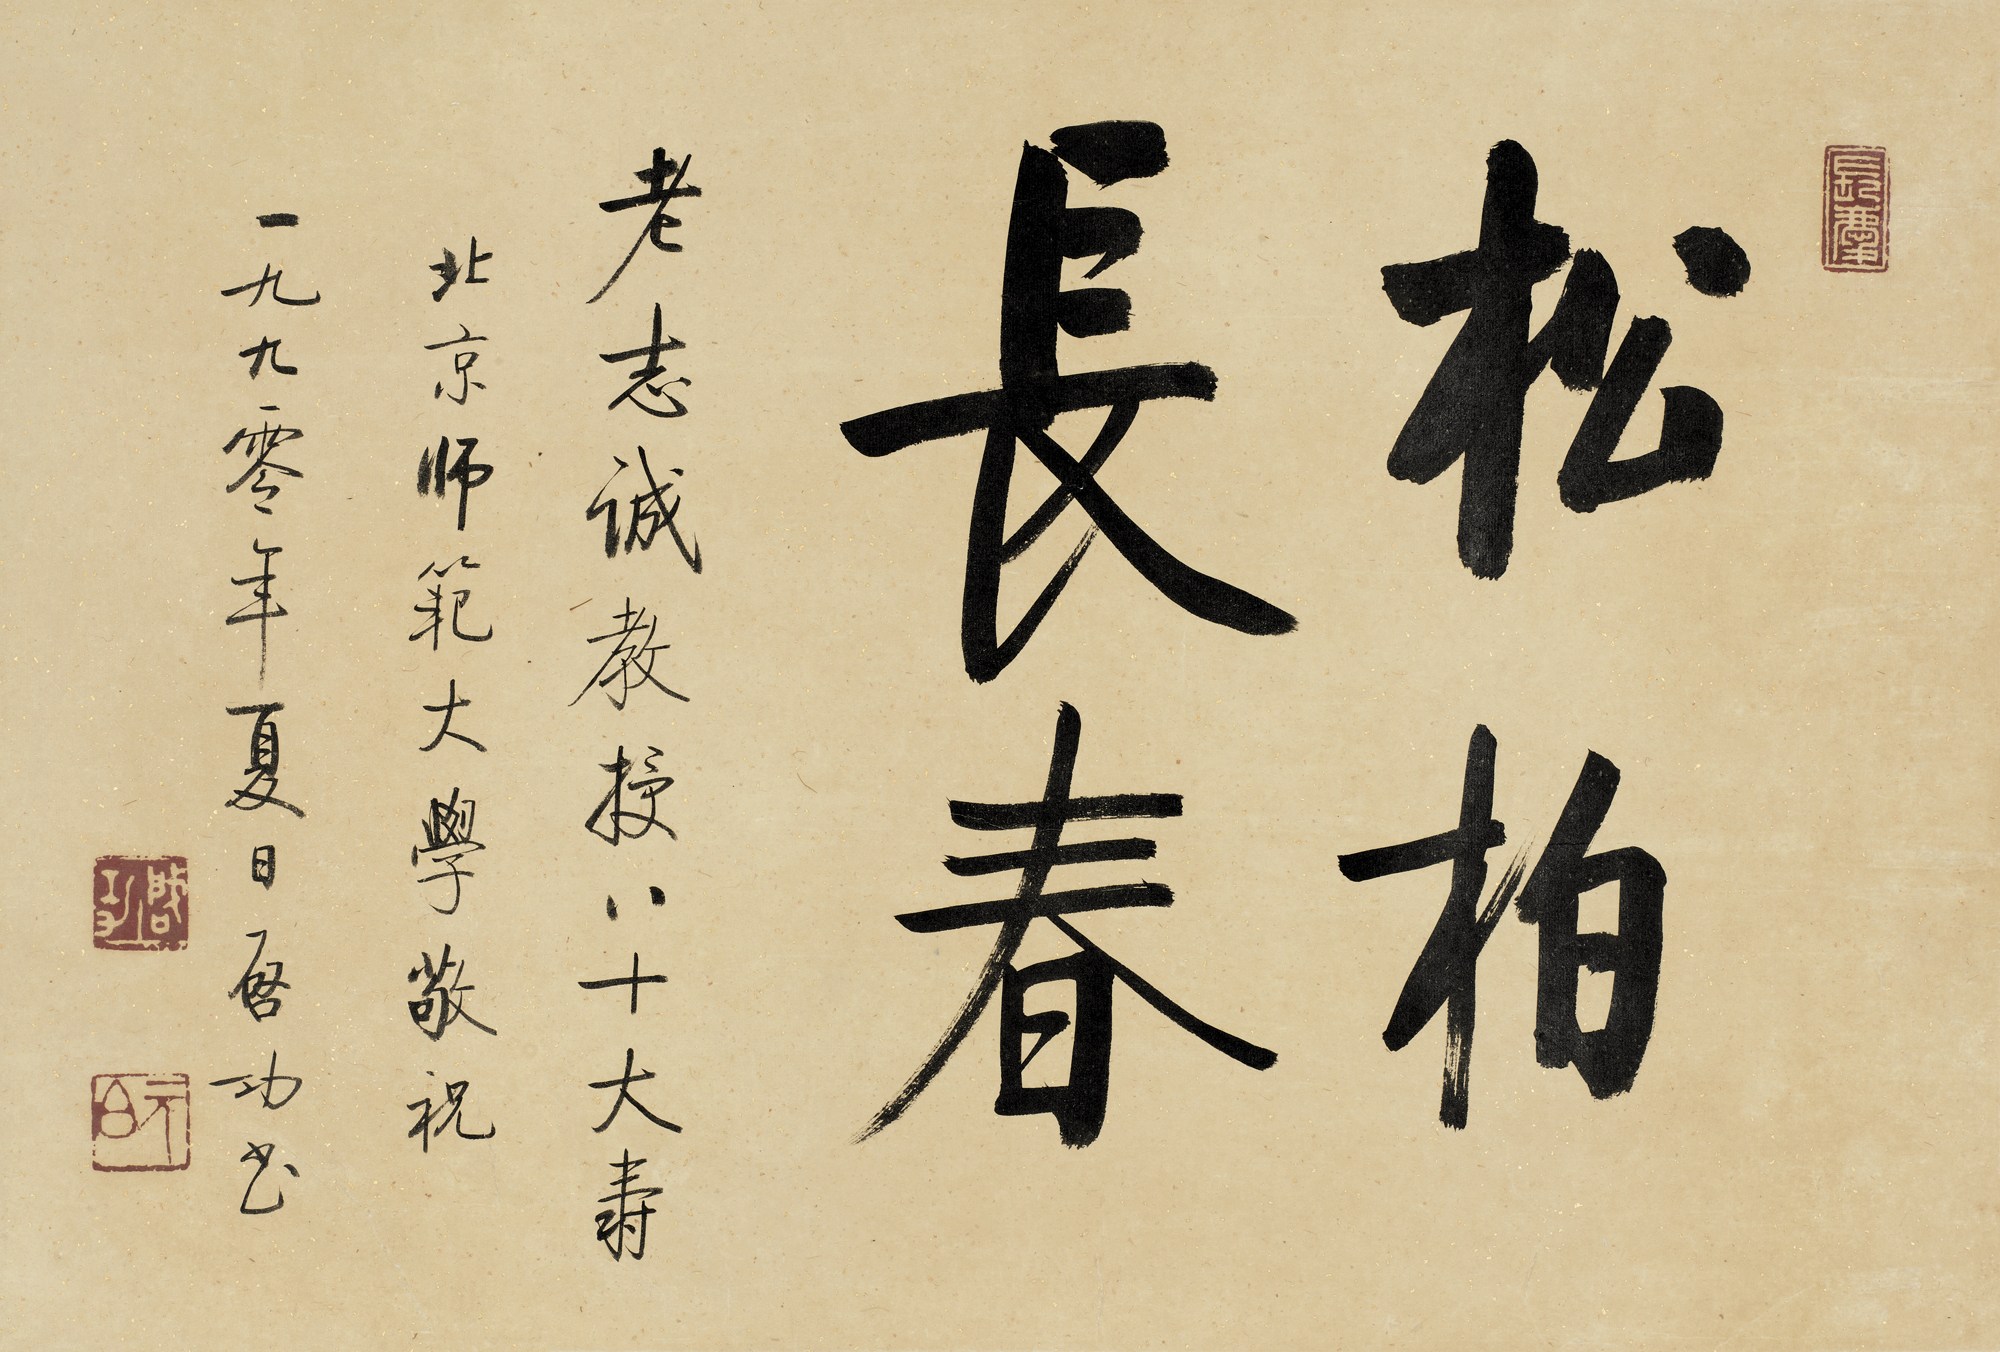 松柏
長春
老志誠教授八十大壽
北京师範大學敬祝
一九九零年夏日启功书
啟功
元白